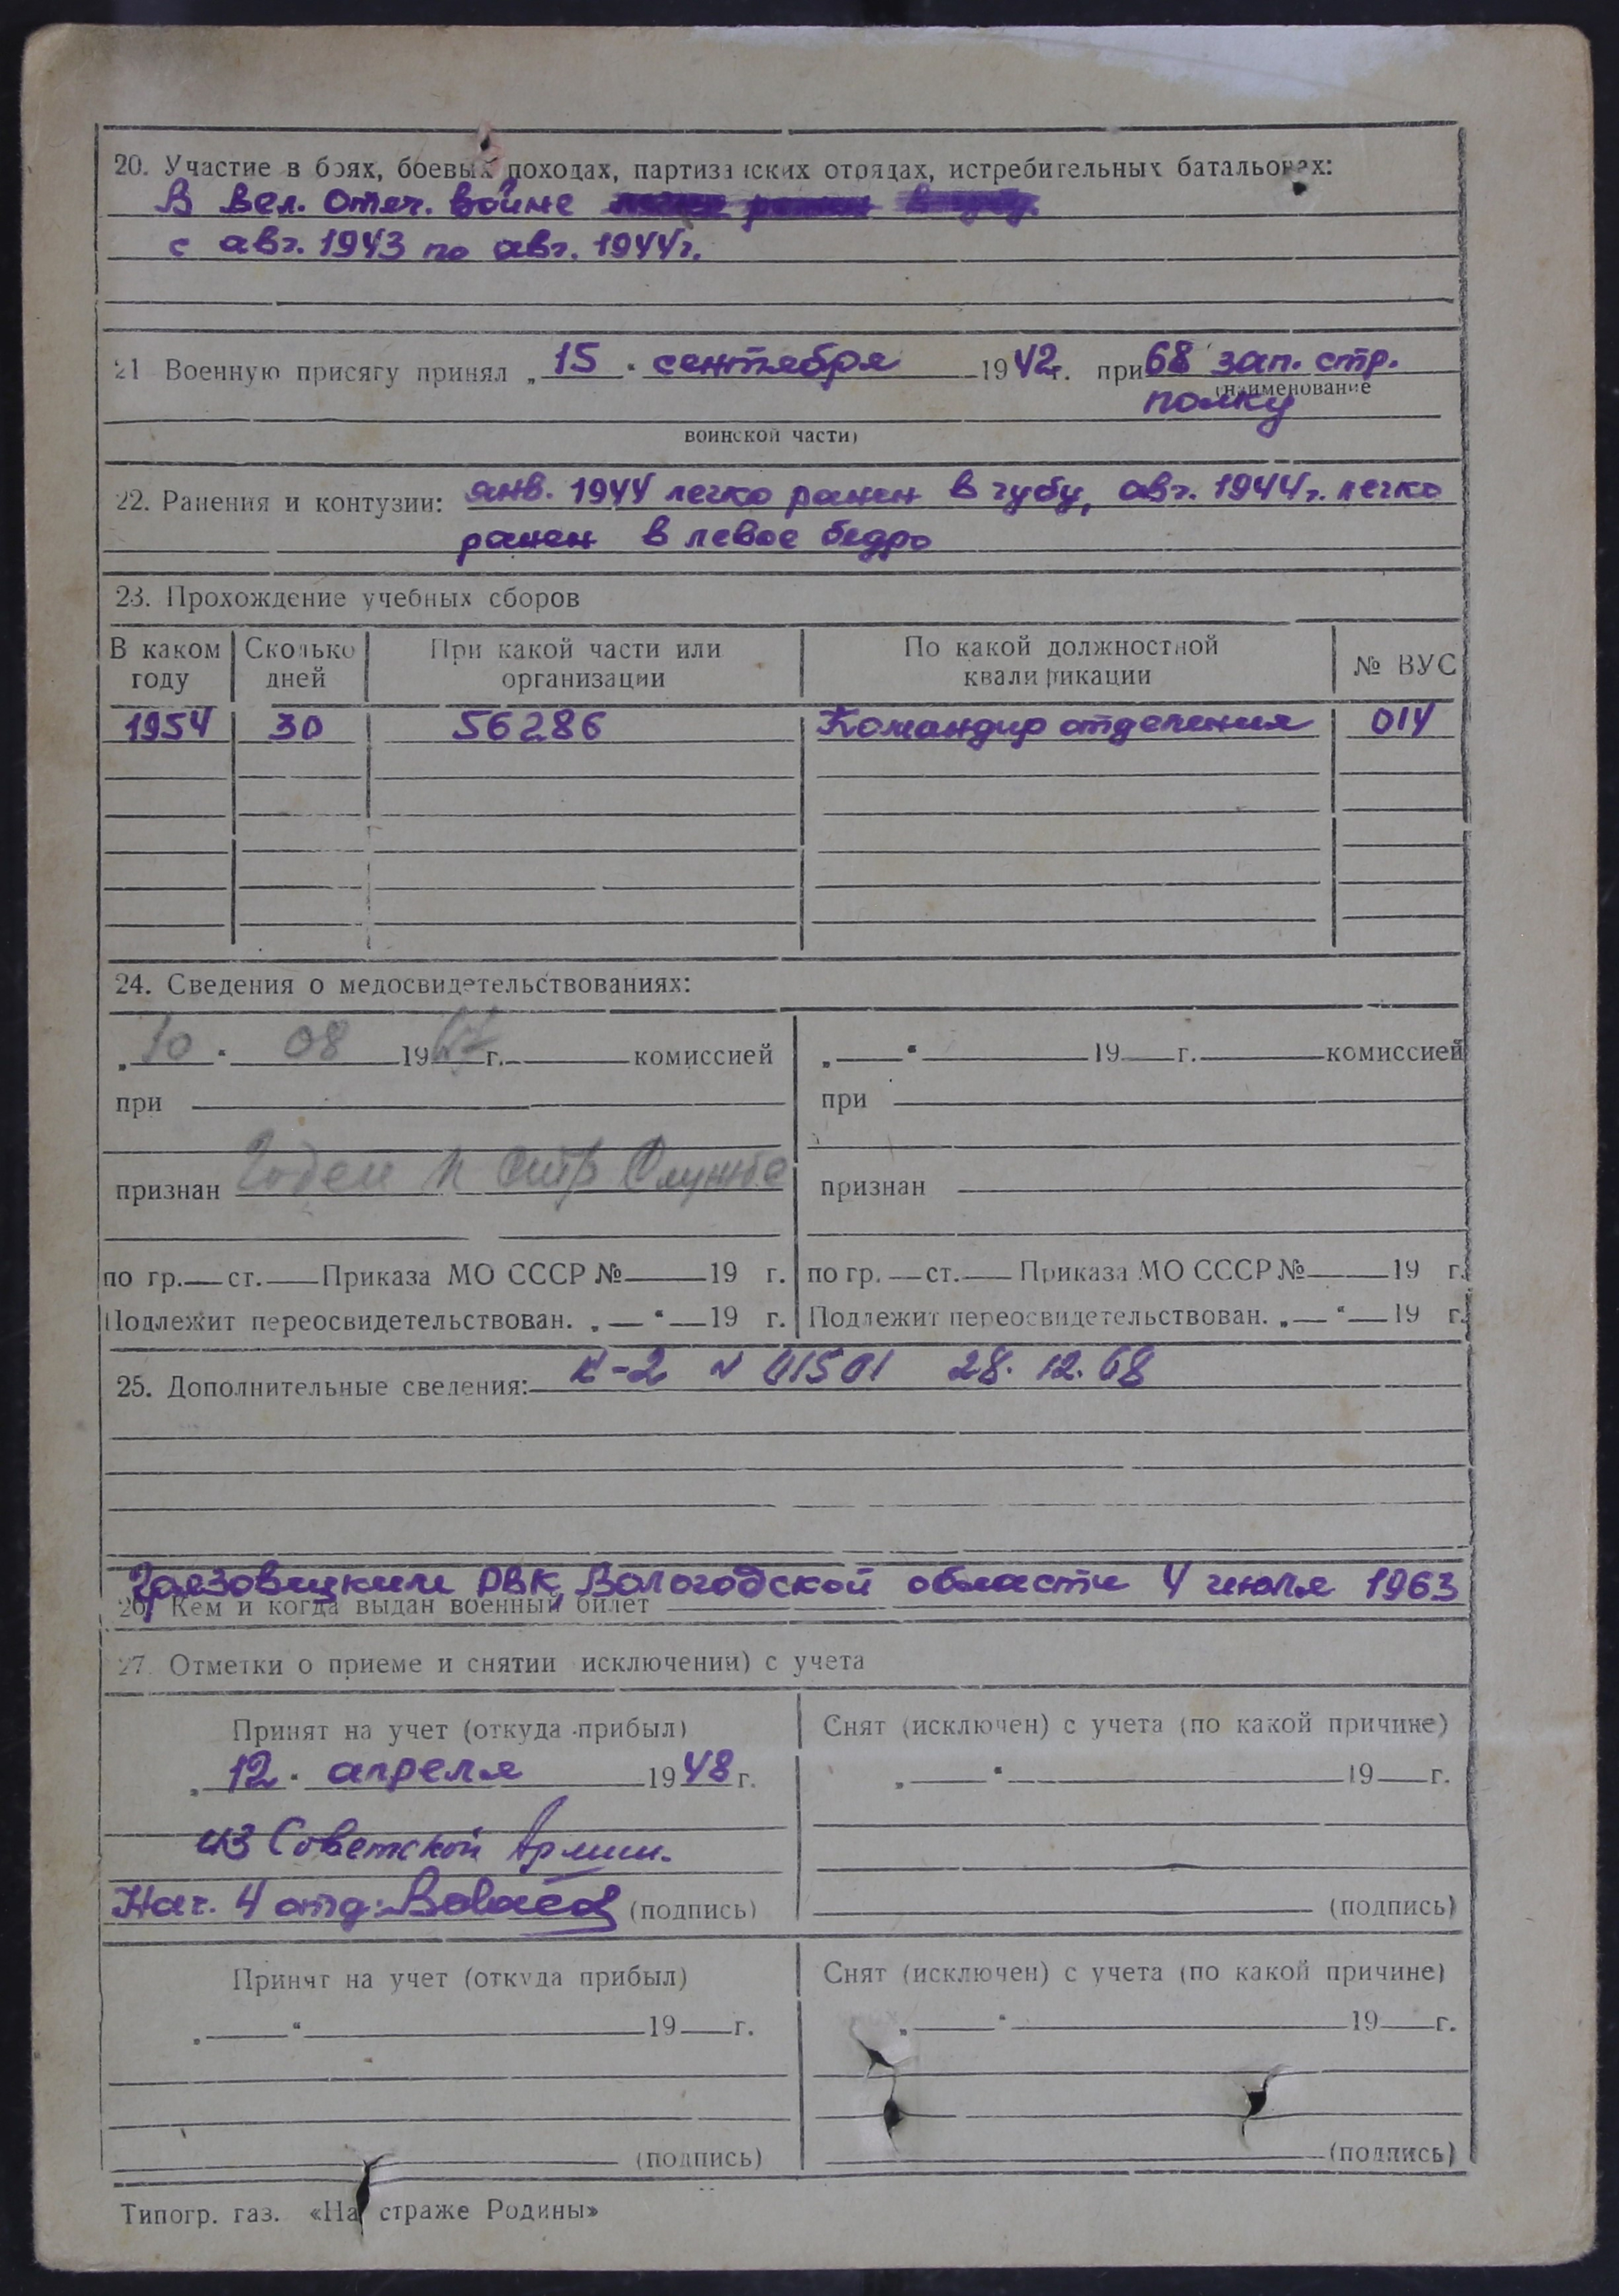 20. Участие в боях, боевых походах, партизанских отрядах, истребительных батальонах:
В Вел. Отеч. войне
с авг. 1943 по авг. 1944г.
21 Военную присягу принял „15" сентября 1942г. при 68 зап. стр.
(наименование
полку
воинской части)
22. Ранения и контузии: янв. 1944 легко ранен в губу, авг. 1944г. легко
ранен в левое бедро
23. Прохождение учебных сборов
В каком году Сколько дней При какой части или организации По какой должностной квалификации № ВУС
1954 30 56286 Командир отделения 014
24. Сведения о медосвидетельствованиях:
„10" 08 1967г. комиссией „ " 19 г. комиссией
при при
признан Годен к стр службе признан
по гр. ст. Приказа МО СССР № 19 г. по гр. ст. Приказа МО СССР № 19 г.
Подлежит переосвидетельствован. „ " 19 г. Подлежит переосвидетельствован. „ " 19 г.
25. Дополнительные сведения: К-2 N 01501 28.12.68
Грязовецким РВК, Вологодской области 4 июля 1963
26. Кем и когда выдан военный билет
27. Отметки о приеме и снятии исключении) с учета
Принят на учет (откуда прибыл) Снят (исключен) с учета (по какой причине)
„12" апреля 1948 г. „ " 19 г.
из Советской Армии.
Нач. 4 отд: (подпись) (подпись)
Принят на учет (откуда прибыл) Снят (исключен) с учета (по какой причине)
„ " 19 г. „ " 19 г.
(подпись) (подпись)
Типогр. газ. «На страже Родины»